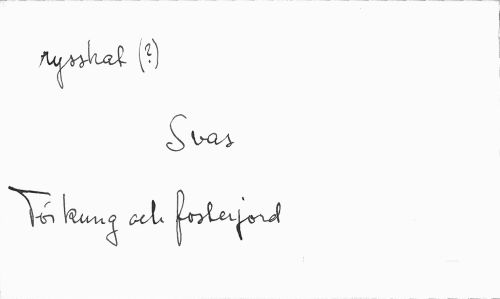 rysskat (?)
Svas
För kung och fosterjord